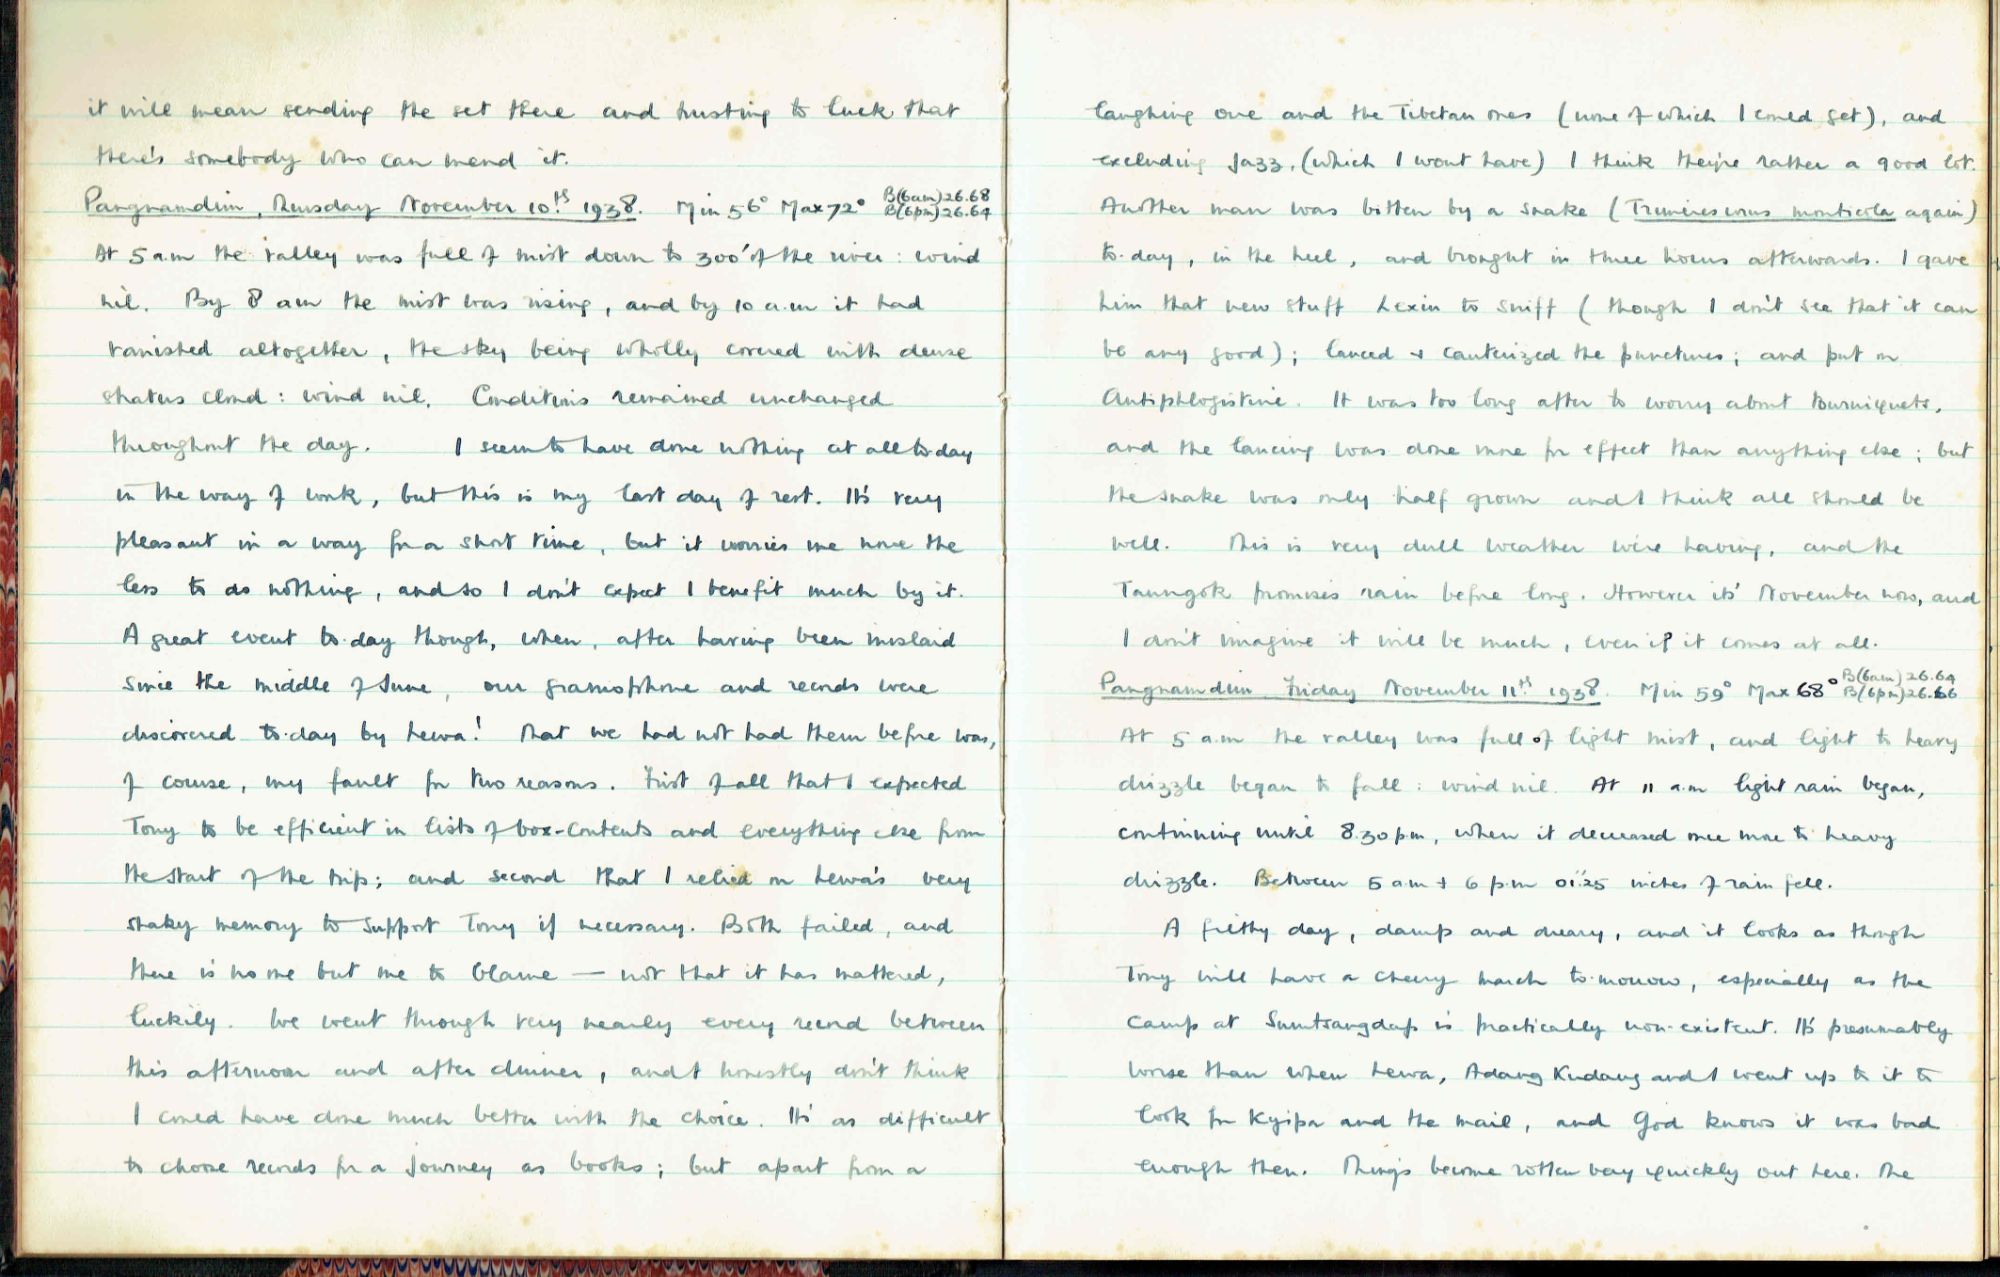 it will mean sending the set there and trusting to luck that
there's somebody who can mend it.
Pangnamdim, Thursday November 10th 1938. Min 56° Max 72° B(6am) 26.68
B(6pm) 26.64
At 5 a.m the valley was full of mist down to 300' of the river: wind
nil. By 8 am the mist was rising, and by 10 a.m it had
vanished altogether, the sky being wholly covered with dense
stratus cloud: wind nil. Conditions remained unchanged
throughout the day. I seem to have done nothing at all to-day
in the way of work, but this is my last day of rest. It's very
pleasant in a way for a short time, but it worries me none the
less to do nothing, and so I don't expect I benefit much by it.
A great event to-day though, when, after having been mislaid
since the middle of June, our gramophone and records were
discovered to-day by Lewa! That we had not had them before was,
of course, my fault for two reasons. First of all that I expected
Tony to be efficient in lists of box-contents and everything else from
the start of the trip; and second that I relied on Lewa's very
shaky memory to support Tony if necessary. Both failed, and
there is no one but me to blame — not that it has mattered,
luckily. We went through very nearly every record between
this afternoon and after dinner, and I honestly don't think
I could have done much better with the choice. It's as difficult
to choose records for a journey as books; but apart from a
laughing one and the Tibetan ones (none of which I could get), and
excluding jazz, (which I wont have) I think they're rather a good lot.
Another man was bitten by a snake (Trimeresurus monticola again)
to-day, in the heel, and brought in three hours afterwards. I gave
him that new stuff Lexin to sniff (though I don't see that it can
be any good); lanced + cauterized the punctures; and put on
Antiphlogistine. It was too long after to worry about tourniquets,
and the lancing was done more for effect than anything else; but
the snake was only half grown and I think all should be
well. This is very dull weather we're having, and the
Taungok promises rain before long. However its' November now, and
I don't imagine it will be much, even if it comes at all.
Pangnamdim Friday November 11th 1938. Min 59° Max 68° B(6am) 26.64
B(6pm) 26.66
At 5 a.m the valley was full of light mist, and light to heavy
drizzle began to fall: wind nil. At 11 a.m light rain began,
continuing until 8.30 pm, when it decreased once more to heavy
drizzle. Between 5 am + 6 p.m 01".25 inches of rain fell.
A filthy day, damp and dreary, and it looks as though
Tony will have a cheery march to-morrow, especially as the
camp at Sumtsangdap is practically non-existent. It's presumably
worse than when Lewa, Adang Kudang and I went up to it to
look for Kyipa and the mail, and God knows it was bad
enough then. Things become rotten very quickly out here. The